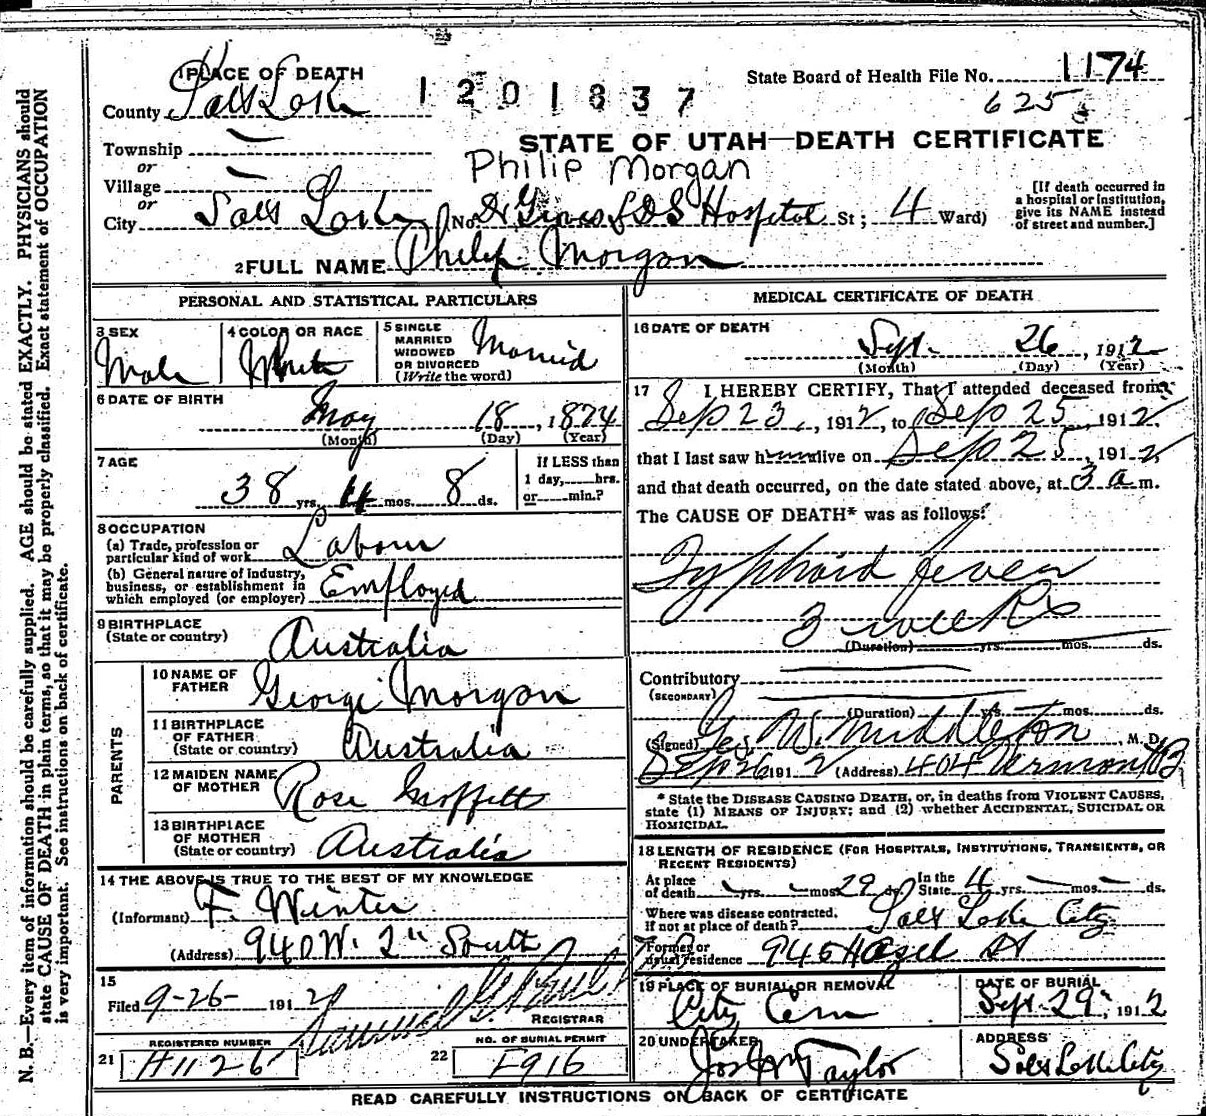 1 PLACE OF DEATH
County Salt Lake
1201837
State Board of Health File No. 1174
625
STATE OF UTAH—DEATH CERTIFICATE
Township —
or
Village —
or
City Salt Lake
Philip Morgan
(No. Dr Groves LDS Hospital St; 4 Ward)
[If death occurred in a hospital or institution, give its NAME instead of street and number.]
2 FULL NAME Philip Morgan
PERSONAL AND STATISTICAL PARTICULARS
3 SEX
Male
4 COLOR OR RACE
White
5 SINGLE
MARRIED
WIDOWED
OR DIVORCED
(Write the word)
Married
6 DATE OF BIRTH
May 18, 1874
(Month) (Day) (Year)
7 AGE
38 yrs. 4 mos. 8 ds.
If LESS than
1 day, hrs.
or min.?
8 OCCUPATION
(a) Trade, profession or
particular kind of work
Labour
(b) General nature of industry,
business, or establishment in
which employed (or employer)
Employed
9 BIRTHPLACE
(State or country)
Australia
PARENTS
10 NAME OF
FATHER
George Morgan
11 BIRTHPLACE
OF FATHER
(State or country)
Australia
12 MAIDEN NAME
OF MOTHER
Rose
13 BIRTHPLACE
OF MOTHER
(State or country)
Australia
14 THE ABOVE IS TRUE TO THE BEST OF MY KNOWLEDGE
(Informant) F. Winter
(Address) 940 W. 2" South
15
Filed 9-26- 1912
REGISTRAR
REGISTERED NUMBER
21 H1126
NO. OF BURIAL PERMIT
22 F916
MEDICAL CERTIFICATE OF DEATH
16 DATE OF DEATH
Sept. 26, 1912
(Month) (Day) (Year)
17 I HEREBY CERTIFY, That I attended deceased from
Sep 23, 1912, to Sep 25, 1912,
that I last saw him alive on Sep 25, 1912,
and that death occurred, on the date stated above, at 3 a m.
The CAUSE OF DEATH* was as follows:
Typhoid fever
3 weeks
(Duration) yrs. mos. ds.
Contributory
(SECONDARY)
(Duration) yrs. mos. ds.
(Signed) Geo. W. Middleton, M. D.
Sep 26 1912 (Address) 404 Vermont B
* State the DISEASE CAUSING DEATH, or, in deaths from VIOLENT CAUSES,
state (1) MEANS OF INJURY; and (2) whether ACCIDENTAL, SUICIDAL OR
HOMICIDAL.
18 LENGTH OF RESIDENCE (FOR HOSPITALS, INSTITUTIONS, TRANSIENTS, OR
RECENT RESIDENTS)
At place
of death — yrs. — mos. 29 ds. In the
State 4 yrs. — mos. — ds.
Where was disease contracted,
If not at place of death?
Salt Lake City
Former or
usual residence
945 Hazel St
19 PLACE OF BURIAL OR REMOVAL
City Cem
DATE OF BURIAL
Sept. 29, 1912
20 UNDERTAKER
Jos Wm Taylor
ADDRESS
Salt Lake City
READ CAREFULLY INSTRUCTIONS ON BACK OF CERTIFICATE
N. B.—Every item of information should be carefully supplied. AGE should be stated EXACTLY. PHYSICIANS should
state CAUSE OF DEATH in plain terms, so that it may be properly classified. Exact statement of OCCUPATION
is very important. See instructions on back of certificate.